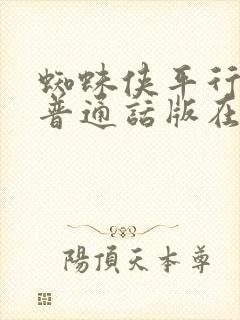 蜘蛛侠平行
普通話版在
陽頂天本尊